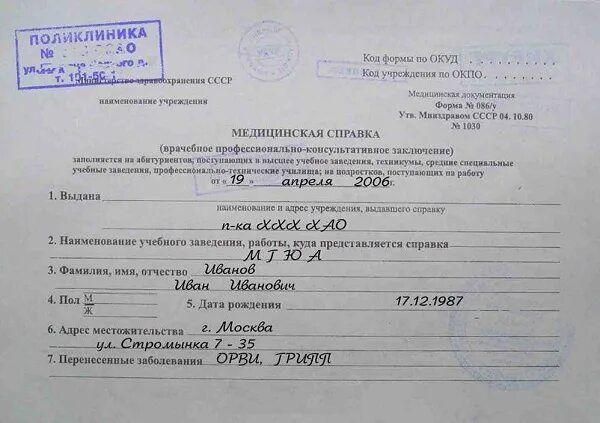 ПОЛИКЛИНИКА
№
ул.
т. 101-50-
Министерство здравоохранения СССР
наименование учреждения
Код формы по ОКУД
Код учреждения по ОКПО
Медицинская документация
Форма № 086/у
Утв. Минздравом СССР 04.10.80
№ 1030
МЕДИЦИНСКАЯ СПРАВКА
(врачебное профессионально-консультативное заключение)
заполняется на абитуриентов, поступающих в высшее учебное заведения, техникумы, средние специальные
учебные заведения, профессионально-технические училища; на подростков, поступающих на работу
от «19» апреля 2006г.
1. Выдана
наименование и адрес учреждения, выдавшего справку
п-ка ХХХ ХАО
2. Наименование учебного заведения, работы, куда представляется справка
М Г Ю А
3. Фамилия, имя, отчество Иванов
Иван Иванович
4. Пол М/Ж 5. Дата рождения 17.12.1987
6. Адрес местожительства г. Москва
ул. Стромынка 7 - 35
7. Перенесенные заболевания ОРВИ, ГРИПП